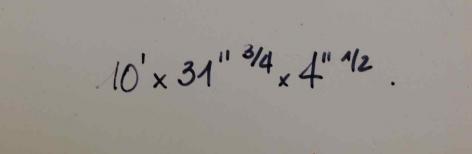 10' x 31" 3/4 x 4" 1/2 .